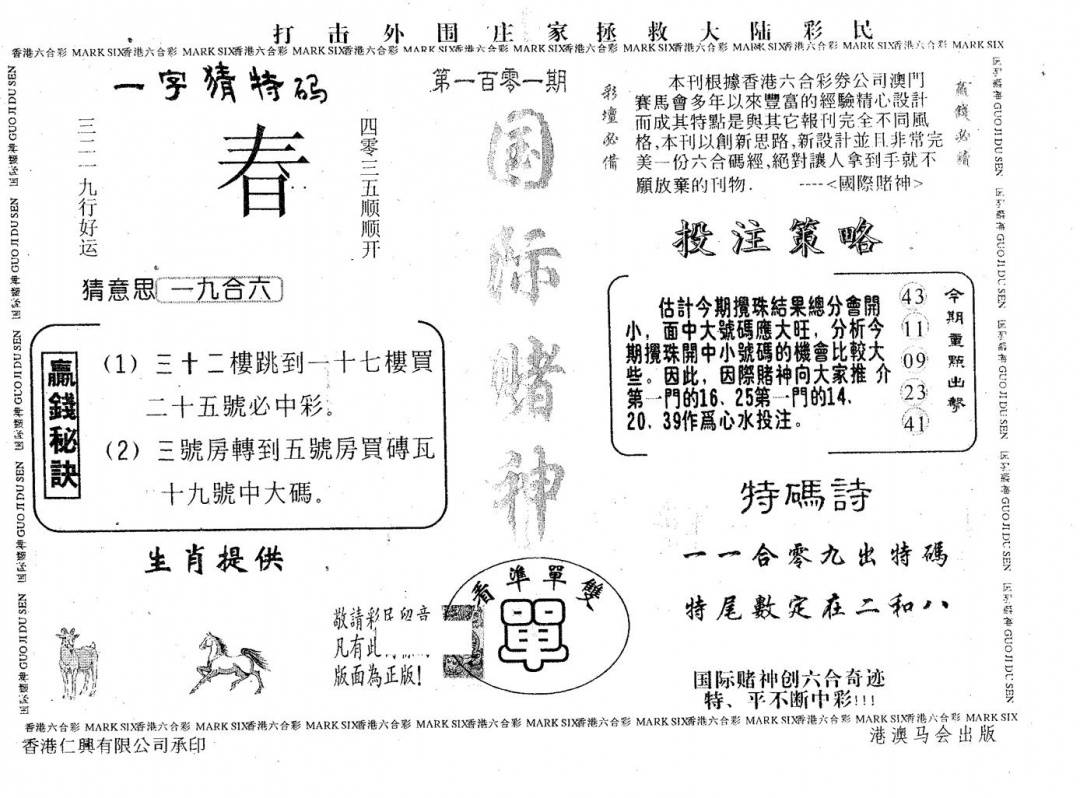 打击外围庄家拯救大陆彩民
香港六合彩 MARK SIX香港六合彩 MARK SIX香港六合彩 MARK SIX香港六合彩 MARK SIX香港六合彩 MARK SIX香港六合彩 MARK SIX香港六合彩 MARK SIX香港六合彩 MARK SIX香港六合彩 MARK SIX
一字猜特码
三二一九行好运
春
四零三五顺顺开
猜意思 一九合六
贏錢秘訣
(1) 三十二樓跳到一十七樓買
二十五號必中彩。
(2) 三號房轉到五號房買磚瓦
十九號中大碼。
生肖提供
第一百零一期
国际赌神
敬請彩民留意
凡有此
版面為正版!
看準單雙
單
彩壇必備
本刊根據香港六合彩券公司澳門
賽馬會多年以來豐富的經驗精心設計
而成其特點是與其它報刊完全不同風
格,本刊以創新思路,新設計並且非常完
美一份六合碼經,絕對讓人拿到手就不
願放棄的刊物. ----<國際賭神>
投注策略
估計今期攪珠結果總分會開
小，面中大號碼應大旺，分析今
期攪珠開中小號碼的機會比較大
些。因此，因際賭神向大家推 介
第一門的16、25第一門的14、
20、39作爲心水投注。
43
11
09
23
41
今期重點出擊
特碼詩
一一合零九出特碼
特尾數定在二和八
国际赌神创六合奇迹
特、平不断中彩!!!
香港六合彩 MARK SIX香港六合彩 MARK SIX香港六合彩 MARK SIX香港六合彩 MARK SIX香港六合彩 MARK SIX香港六合彩 MARK SIX香港六合彩 MARK SIX香港六合彩 MARK SIX香港六合彩 MARK SIX
香港仁興有限公司承印
港澳马会出版